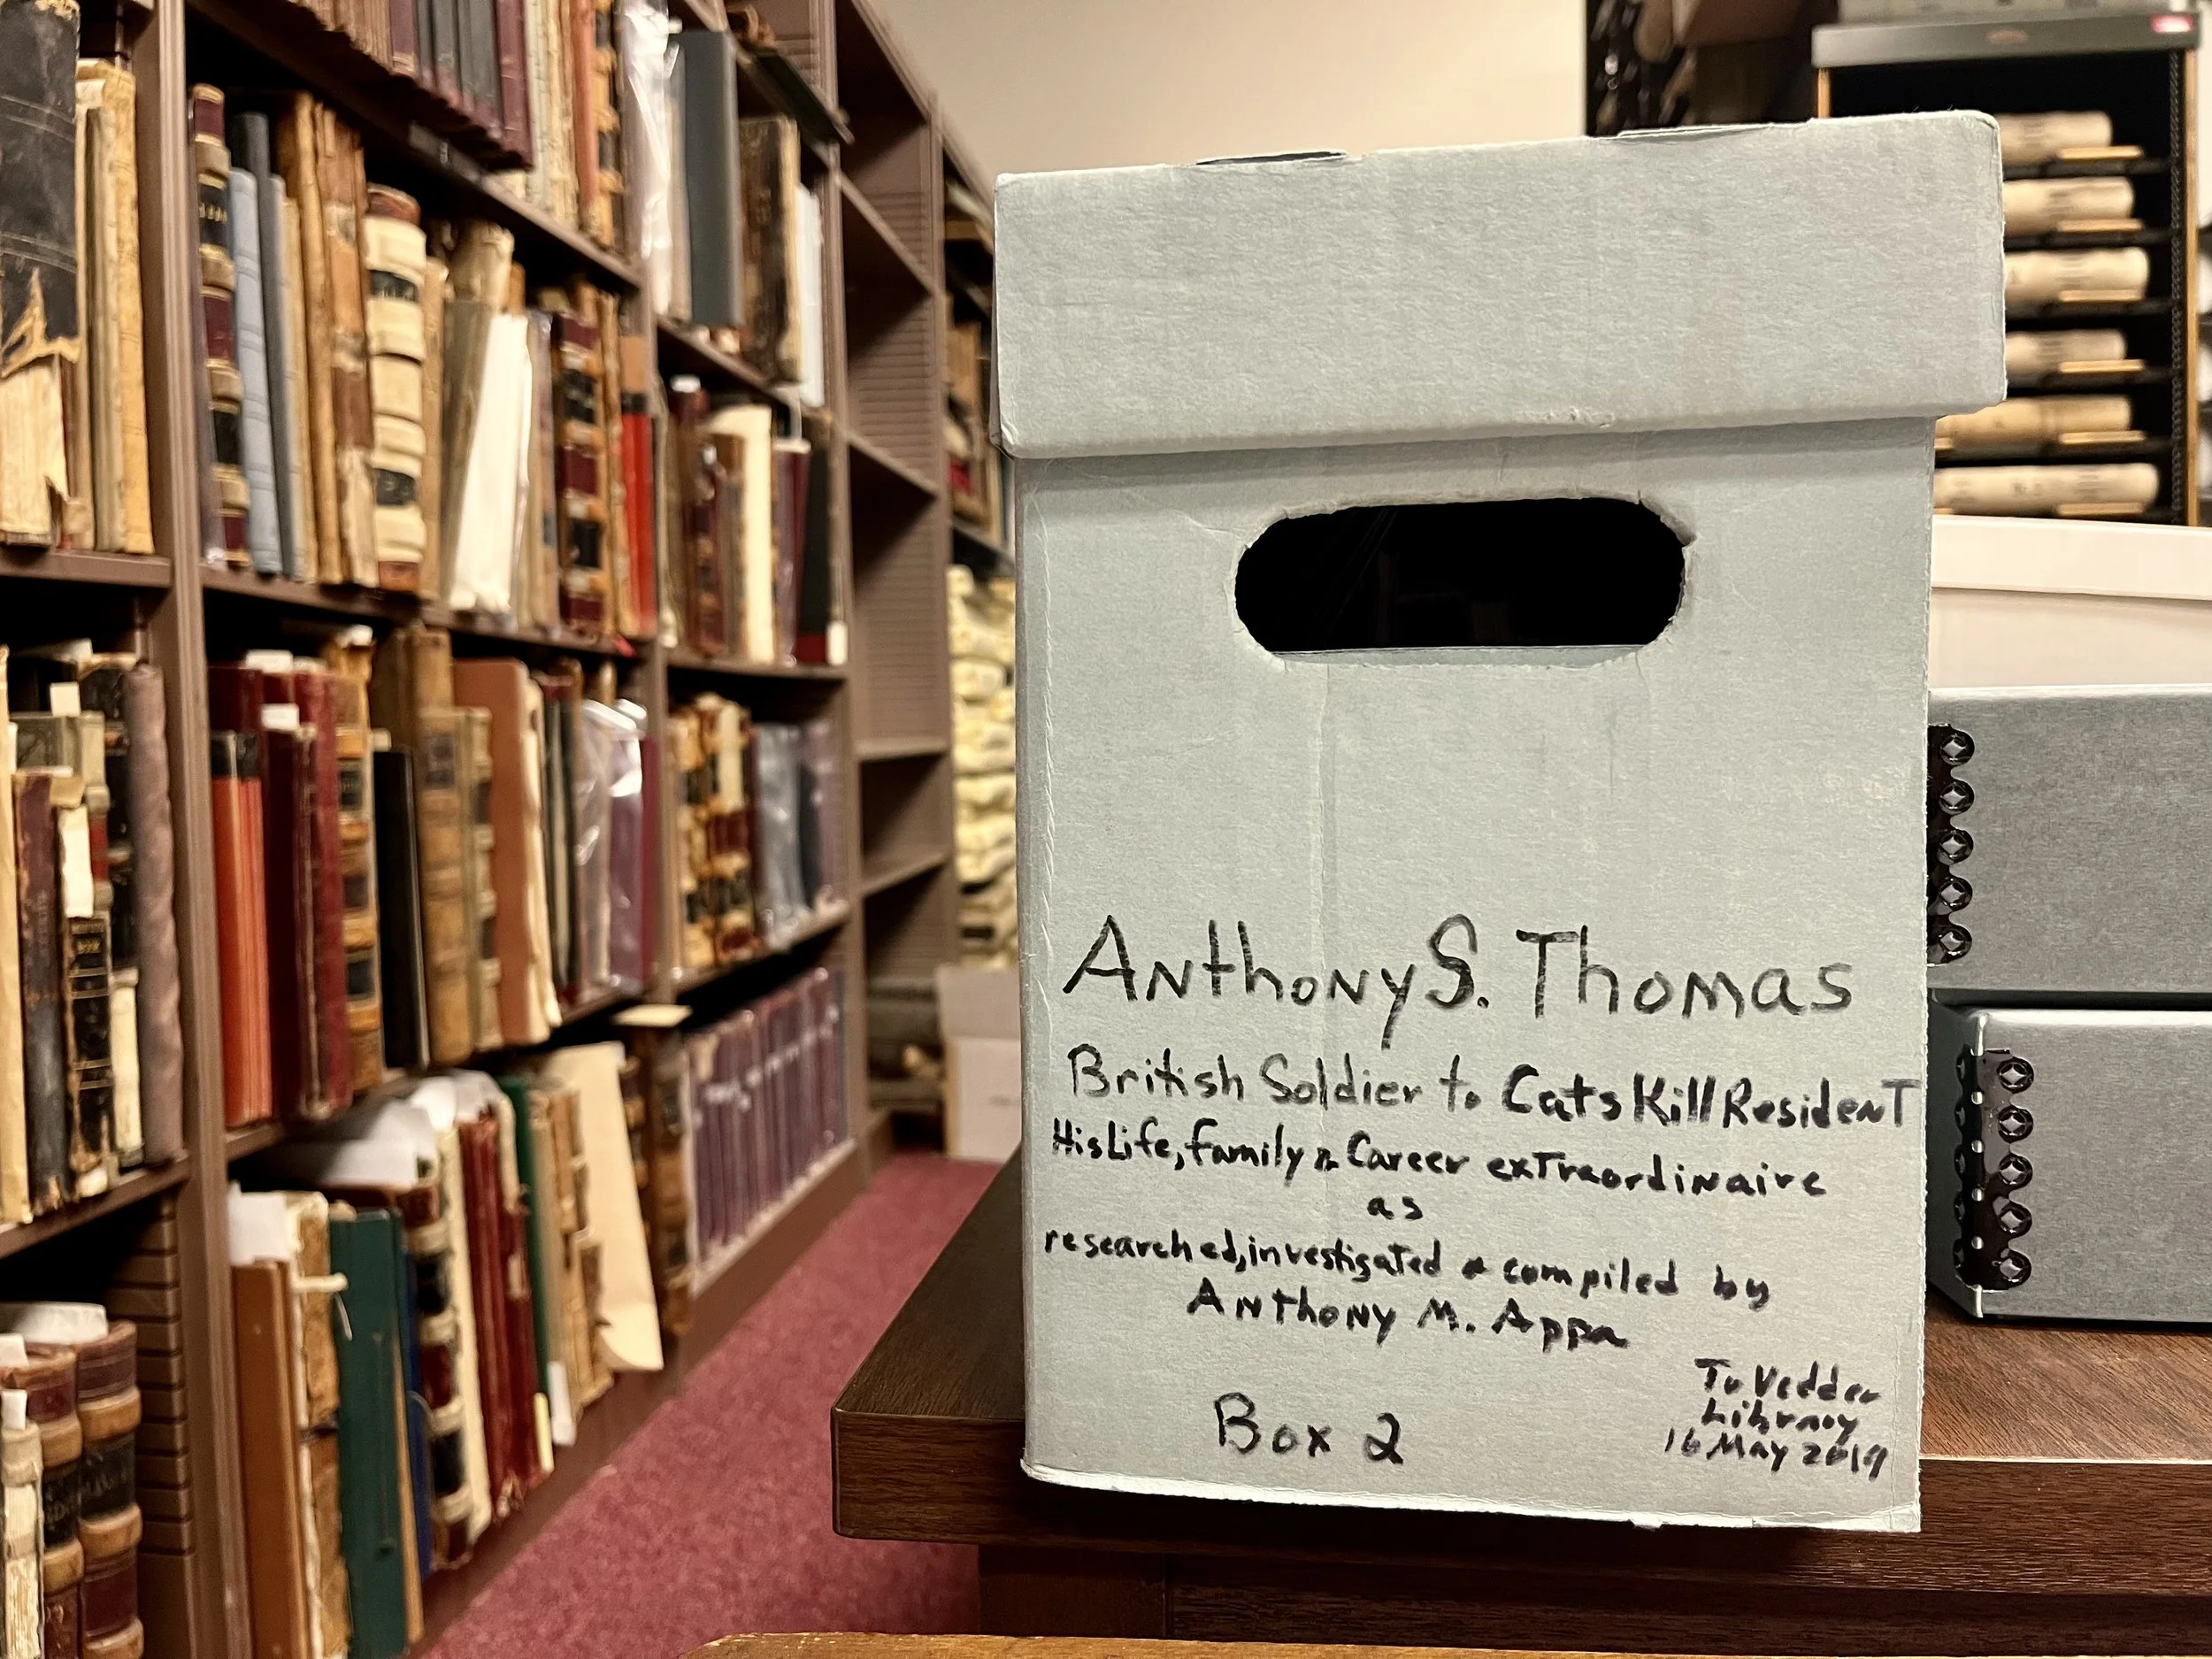 Anthony S. Thomas
British Soldier to CatsKill Resident
His Life, family & Career extraordinaire
as
researched, investigated & compiled by
Anthony M. Appa
Box 2
To Vedder
Library
16 May 2019